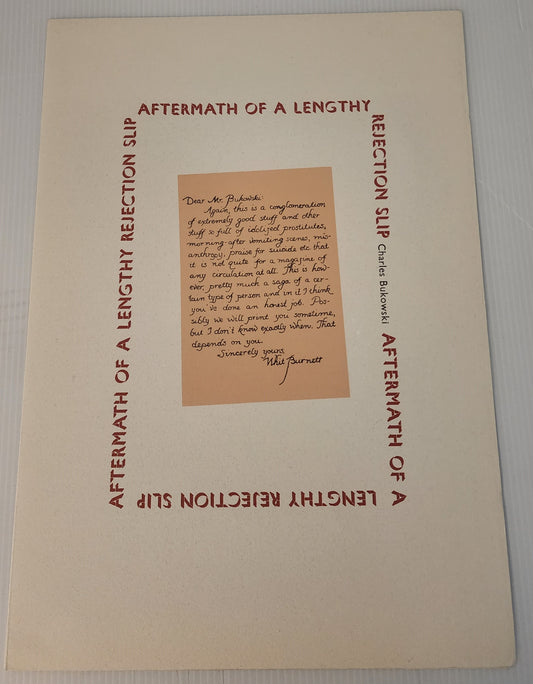 AFTERMATH OF A LENGTHY
REJECTION SLIP Charles Bukowski AFTERMATH OF A
LENGTHY REJECTION SLIP
AFTERMATH OF A LENGTHY REJECTION SLIP
Dear Mr. Bukowski:
Again, this is a conglomeration
of extremely good stuff and other
stuff so full of idolized prostitutes,
morning-after vomiting scenes, mis-
anthropy, praise for suicide etc. that
it is not quite for a magazine of
any circulation at all. This is, how-
ever, pretty much a saga of a cer-
tain type of person and in it I think
you've done an honest job. Pos-
sibly we will print you sometime,
but I don't know exactly when. That
depends on you.
Sincerely yours,
Whit Burnett